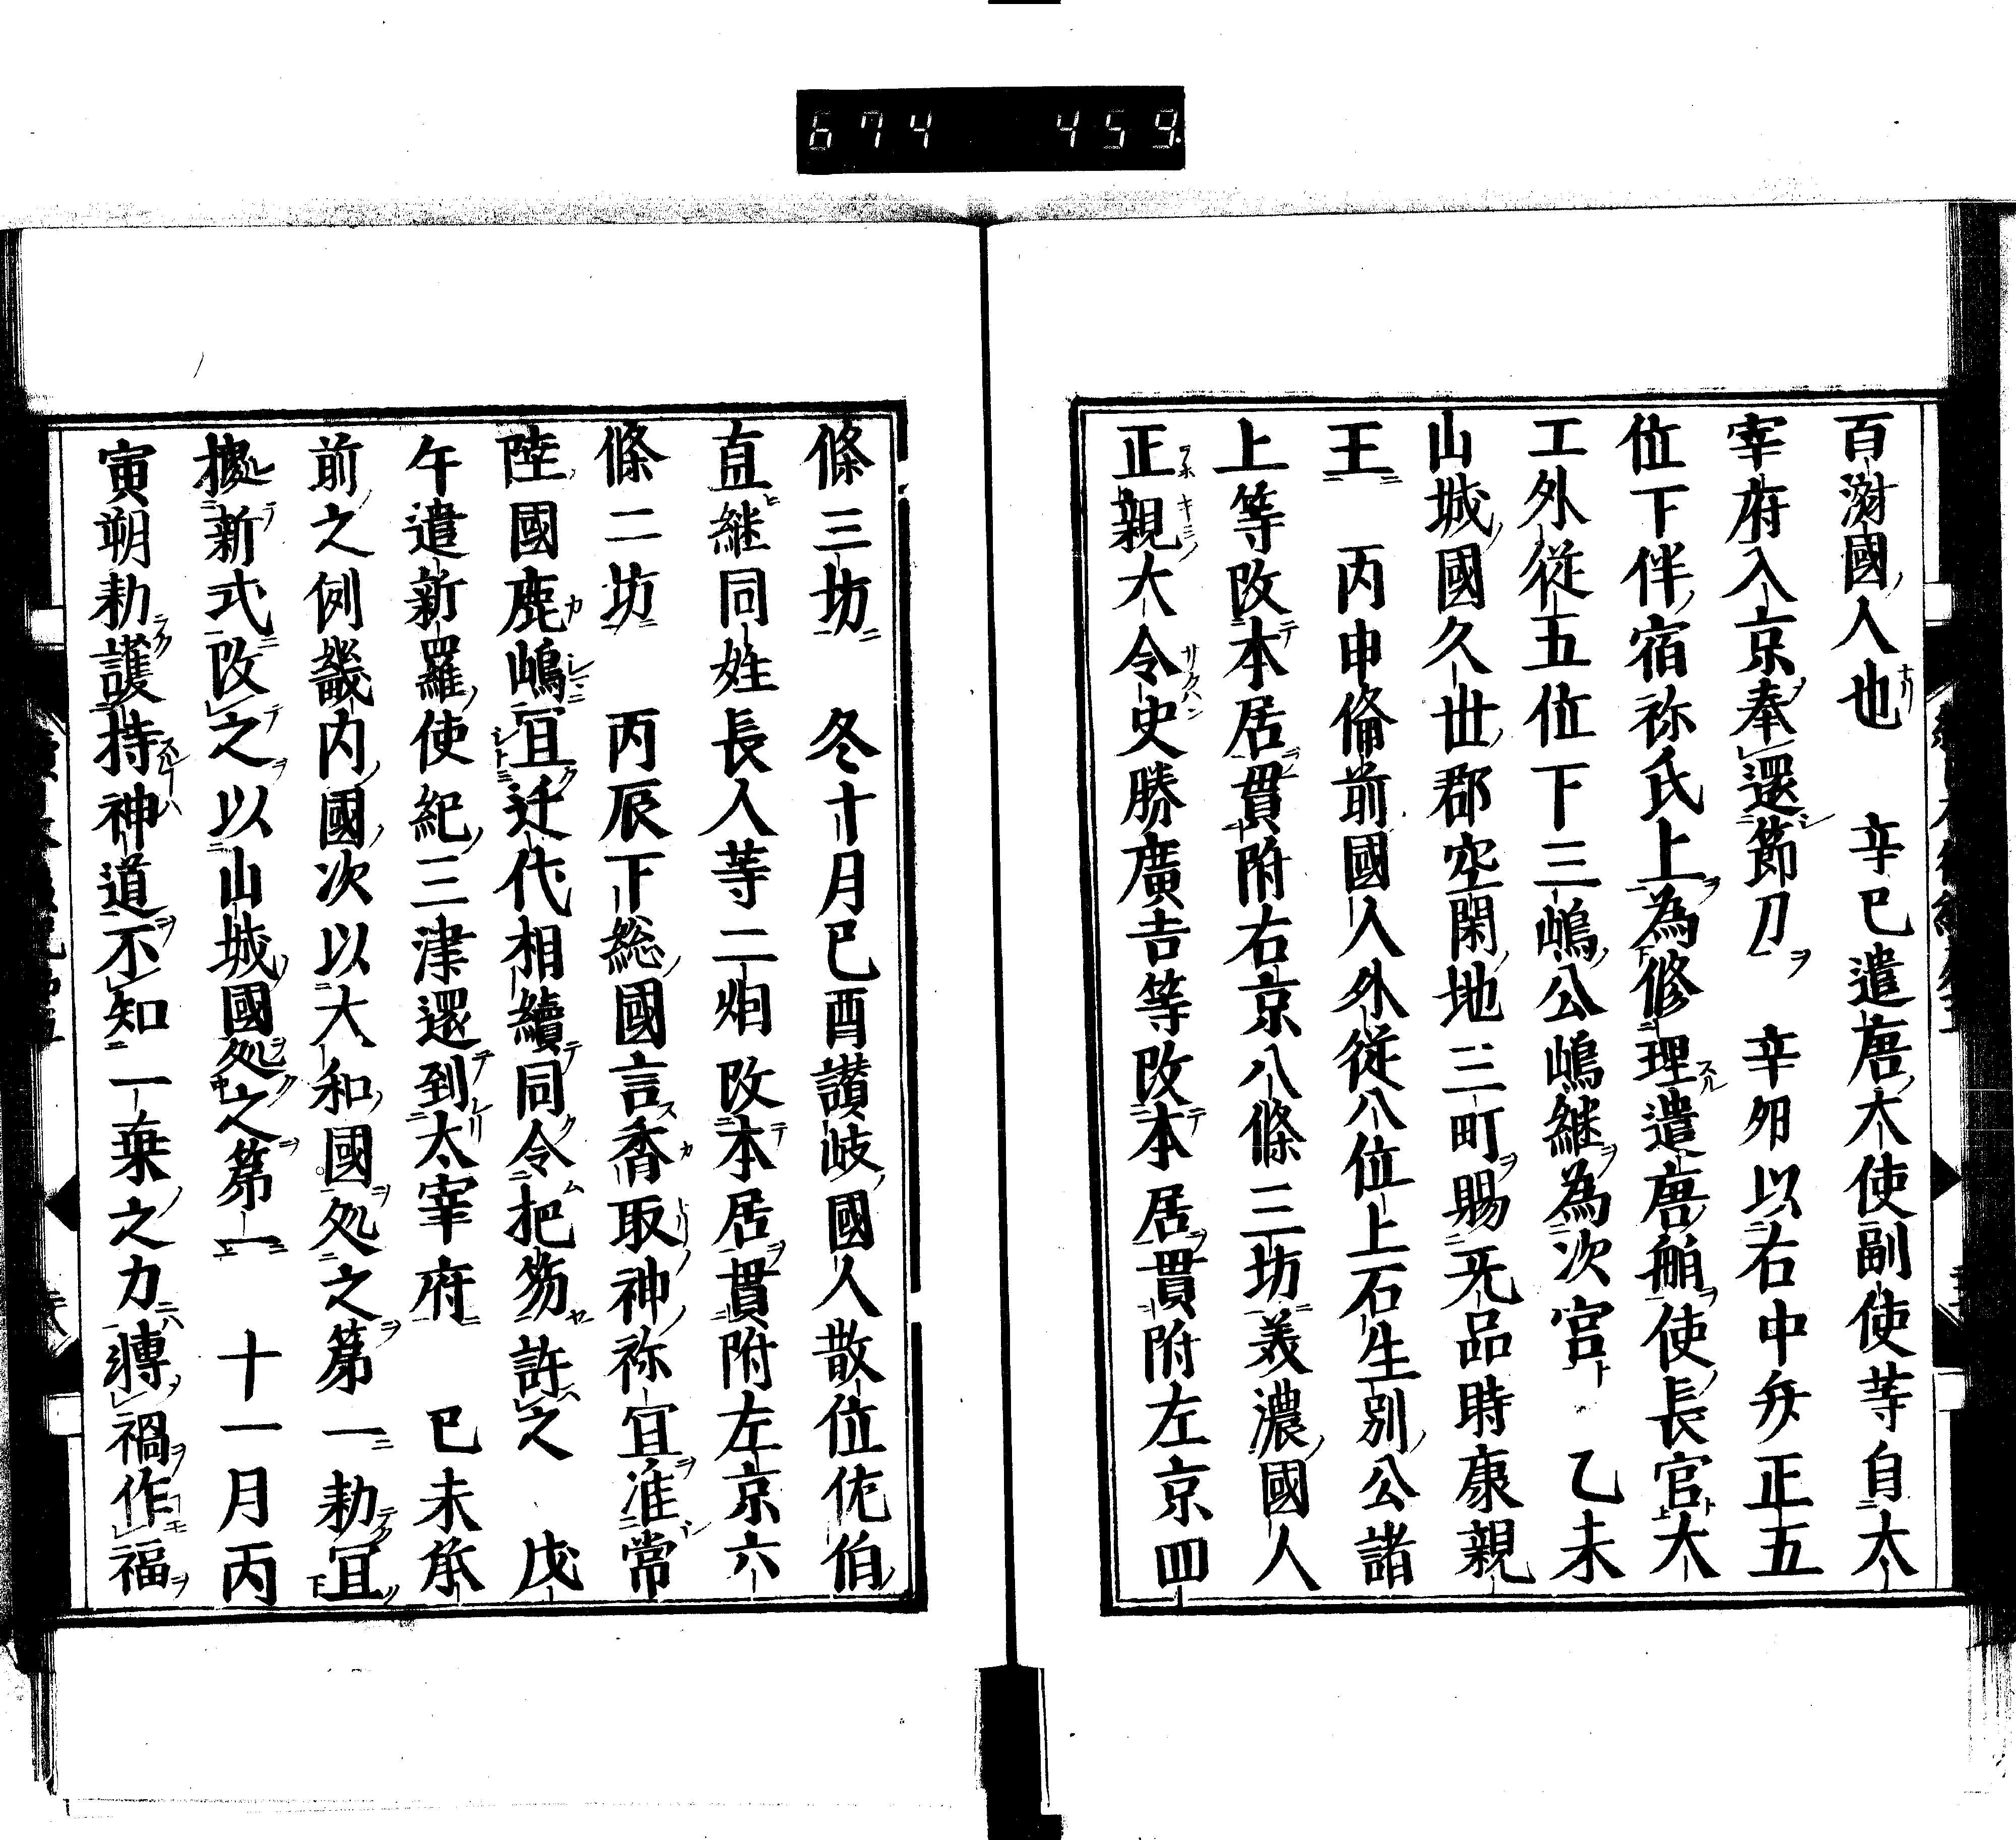 674 459
百濟國人也 辛巳遣唐大使副使等自太
宰府入京奉還節刀 辛夘以右中弁正五
位下伴宿祢氏上為修理遣唐舶使長官大
工外從五位下三嶋公嶋継為次官 乙未
山城國久世郡空閑地三町賜无品時康親
王 丙申俻前國人外從八位上石生別公諸
上等改本居貫附右京八條三坊美濃國人
正親大令史勝廣吉等改本居貫附左京四
條三坊 冬十月己酉讃岐國人散位佐伯
直継同姓長人等二烟改本居貫附左京六
條二坊 丙辰下総國言香取神祢宜准常
陸國鹿嶋宜迁代相續同令把笏許之 戊
午遣新羅使紀三津還到太宰府 己未承
前之例畿内國次以大和國処之第一勅宜
據新式改之以山城國処之第一 十一月丙
寅朔勅護持神道不知一乗之力轉禍作福